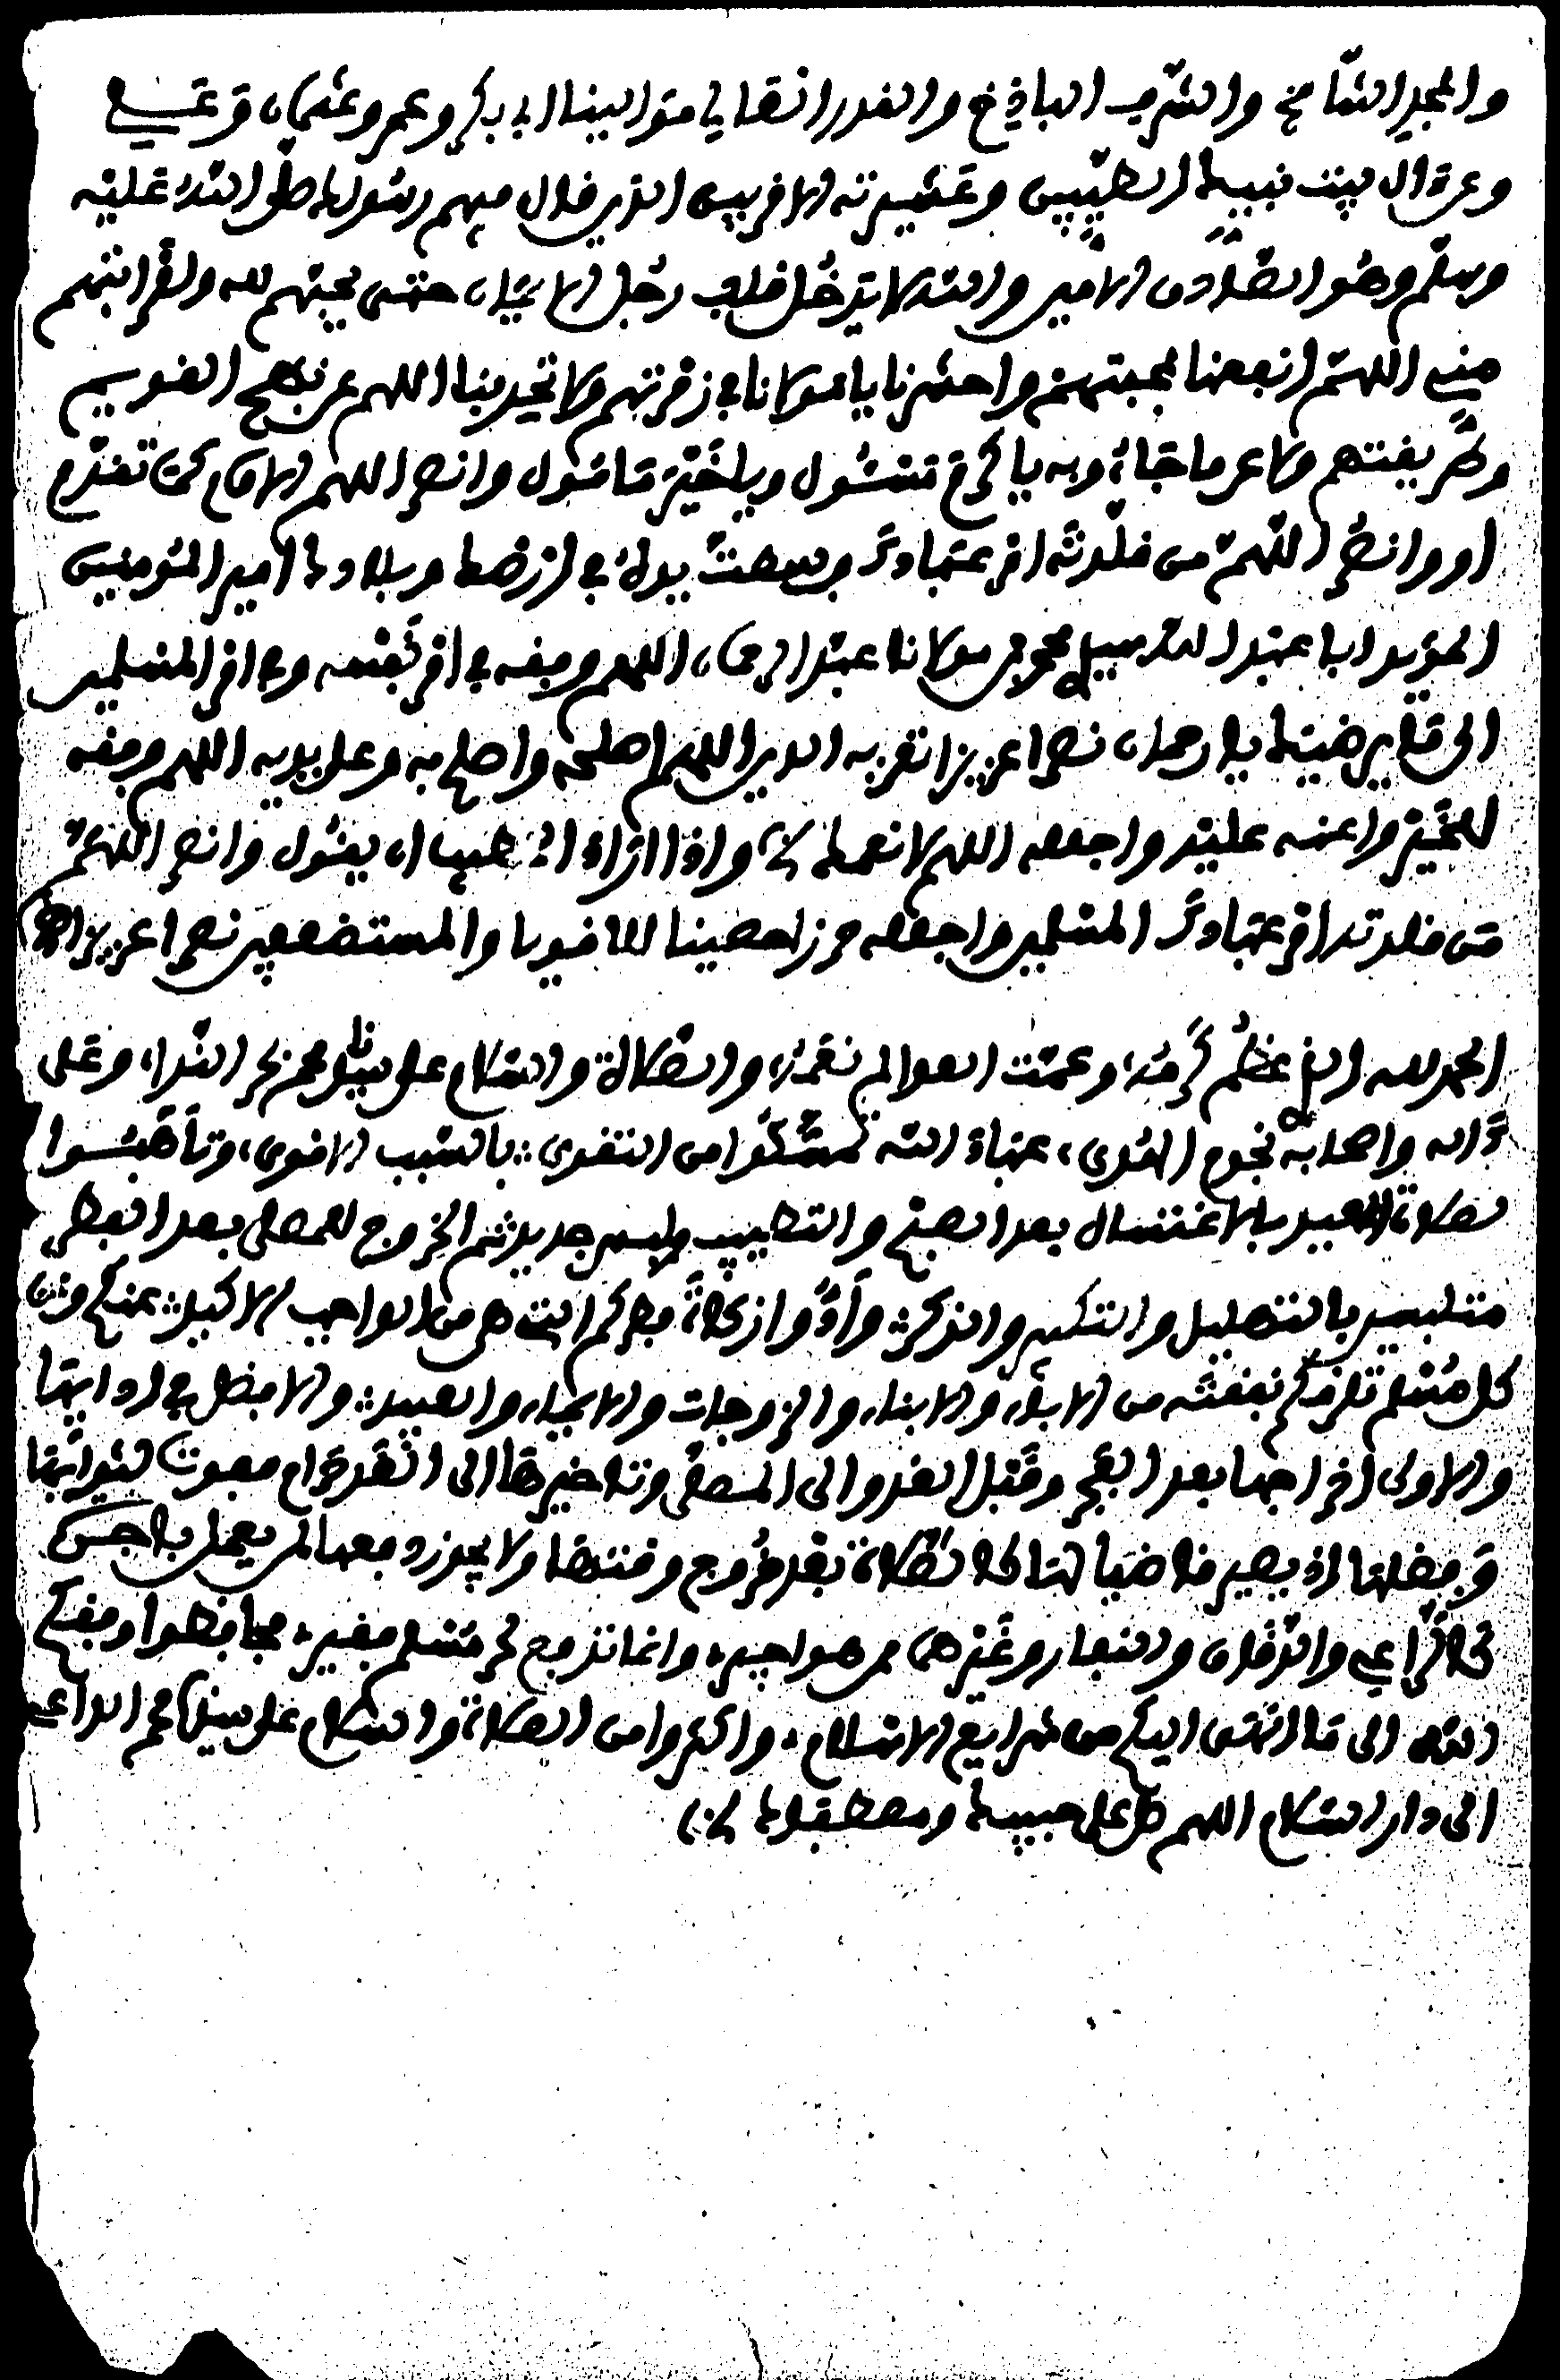 والمجد الشامخ والشرف الباذخ والقدر العالي موالينا ابي بكر وعمر وعثمان وعلي
وعن ال بيت نبيك الطيبين وعشيرته الاقربين الذين قال فيهم رسولك صلى الله عليه
وسلم وهو الصادق الامين والله لا يدخل قلب رجل الايمان حتى يحبهم لله ولقرابتهم
مني اللهم انفعنا بمحبتهم واحشرنا يا مولانا في زمرتهم ولا تحد بنا اللهم عن نهجهم القويم
وطريقتهم ولا عن ما جاءوا به يا أكرم مسئول ويا خير مامول وانصر اللهم الامام كما تقدم
او وانصر اللهم من قلدته امر عبادك وبسطت يده في ارضك وبلادك امير المومنين
المؤيد ابا عبد الله سيدي محمد بن مولانا عبد الرحمان اللهم وفقه في امر نفسه وفي امر المسلمين
الى ما يرضيك يا رحمان نصرا عزيزا تعز به الدين اللهم اصلحه واصلح به وعلى يديه اللهم وفقه
للخير واعنه عليه واجعله اللهم لانعمك الخ واذا اراد الخطيب ان يقول وانصر اللهم
من قلدته امر عبادك المسلمين واجعله حرزا حصينا للاقويا والمستضعفين نصرا عزيزا الخ
الحمد لله الذي عظم كرمه، وعمت العوالم نعمه، والصلاة والسلام على سيدنا محمد بحر الندا، وعلى
ءاله واصحابه نجوم الهدى، عباد الله تمسكوا من التقوى، بالسبب الاقوى، وتاهبوا
لصلاة العيد بالاغتسال بعد الصبح والتطيب ولبس جديد ثم الخروج للمصلى بعد الفطر
متلبسين بالتهليل والتكبير والذكر، وأدوا زكاة فطركم التي هي من الواجب الاكيد، عنكم وعن
كل مسلم تلزمكم نفقته من الاباء، والابناء، والزوجات والايماء، والعبيد، والافضل في ادائها
والاولى اخراجها بعد الفجر وقبل الغدو الى المصلى وتاخيرها الى الغد حرام مفوت لثوابها
وفضلها اذ يصير قاضيا لها كالصلاة بعد خروج وقتها ولا يجوز دفعها لمن يعمل باجرة
كالراعي والرقاق والنفار وغيرهما ممن هو اجير، وانما تدفع لحر مسلم فقير، فحافظوا وفقكم
الله الى ما انتهى اليكم من شرايع الاسلام، واكثروا من الصلاة والسلام على سيدنا محمد الداعي
الى دار السلام اللهم صل على حبيبك ومصطفاك الخ